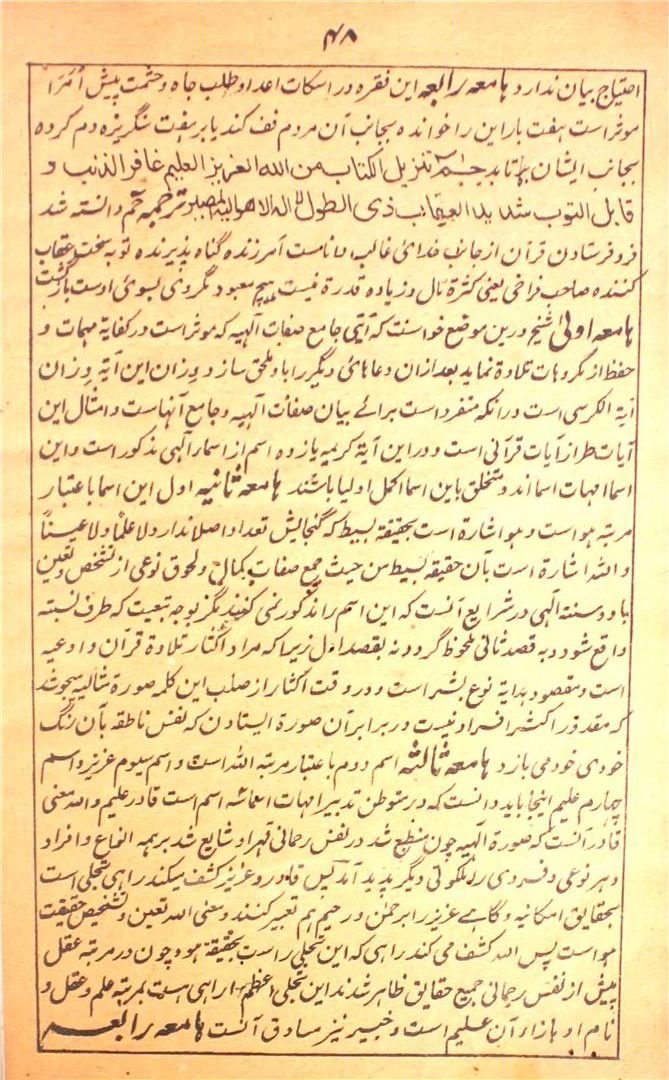 ۴۸
احتیاج بیان ندارد هامعه رابعه این فقره در اسکات اعدا و طلب جاه و حشمت پیش امرا
موثر است هفت بار این را خوانده بجانب آن مردم نف کند یا بر هفت سنگریزه دم کرده
بجانب ایشان حم تنزیل الکتاب من الله العزیز العلیم غافر الذنب و
قابل التوب شدید العقاب ذی الطول لا اله الا هو الیه المصیر ترجمه حم دانسته شد
فرو فرستادن قرآن از جانب خدائ غالب دانا ست آمرزنده گناه پذیرنده توبه سخت عقاب
کننده صاحب فراخی یعنی کثرة مال و زیاده قدرة نیست هیچ معبود مگر وی بسوئ اوست بازگشت
هامعه اولی شیخ درین موضع خواست که آیتی جامع صفات آلهیه که موثر است در کفایة مهمات و
حفظ از مکروهات تلاوة نماید بعد ازان دعاهائ دیگر را با و ملحق سازد و زان این آیة و زان
آیة الکرسی است در آنکه منفرد است برائے بیان صفات آلهیه و جامع آنهاست و امثال این
آیات طراز آیات قرآنی است و در این آیة کریمه یازده اسم از اسماء آلهی مذکور است و این
اسما امهات اسما اند و متخلق باین اسما اکمل اولیا باشند هامعه ثانیه اول این اسما باعتبار
مرتبه هو است و هو اشارة است بحقیقة بسیط که گنجایش تعدد اصلا ندارد لا علماً و لا عیناً
و الله اشارة است بآن حقیقة بسیط من حیث جمع صفات کمال و لحوق نوعی از تشخص و تعین
باو و سنة آلهی در شرایع آنست که این اسم را مذکور نمی کنند مگر بوجه تبعیت که طرف نسبته
واقع شود و به قصد ثانی ملحوظ گردد نه بقصد اول زیرا که مراد اکثار تلاوة قرآن و ادعیه
است و مقصود هدایة نوع بشر است و در وقت اکثار از صلب این کلمه صورة مثالیه
که مقدور اکثر افراد نیست در برابر آن صورة ایستادن که نفس ناطقه بآن رنگ
خودی خود می بازد هامعه ثالثه اسم دوم باعتبار مرتبه الله است و اسم سیوم عزیز و اسم
چهارم علیم اینجا باید دانست که در موطن تدبیر امهات اسما سه اسم است قادر علیم و الله معنی
قادر آنست که صورة آلهیه چون منطبع شد در نفس رحمانی قهر او شایع شد بر همه انواع و افراد
و هر نوعی و فردی را ملکوتی دیگر پدید آمد پس قادر و عزیز کشف میکند راهی تجلی است
بحقایق امکانیه و گاهے عزیز را برحمن و رحیم هم تعبیر کنند و معنی الله تعین و تشخص حقیقت
هو است پس الله کشف می کند راهی که این تجلی راست بحقیقة هو و چون در مرتبه عقل
پیش از نفس رحمانی جمیع حقایق ظاهر شدند این تجلی اعظم را راهی ست بمرتبه علم و عقل و
نام او بازاء آن علیم است و خبیر نیز صادق آنست هامعه رابعه